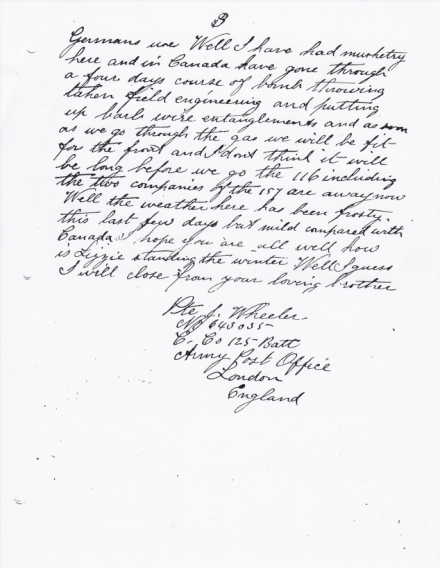 3
Germans use Well I have had musketry
here and in Canada have gone through
a four days course of bomb throwing
taken field engineering and putting
up barb wire entanglements and as soon
as we go through the gas we will be fit
for the front and I dont think it will
be long before we go the 116 including
the two companies of the 157 are away now
Well the weather here has been frosty
this last few days but mild compared with
Canada I hope you are all well how
is Lizzie standing the winter Well I guess
I will close from your loving brother
Pte J. Wheeler
No 643035
C. Co 125 Batt
Army Post Office
London
England